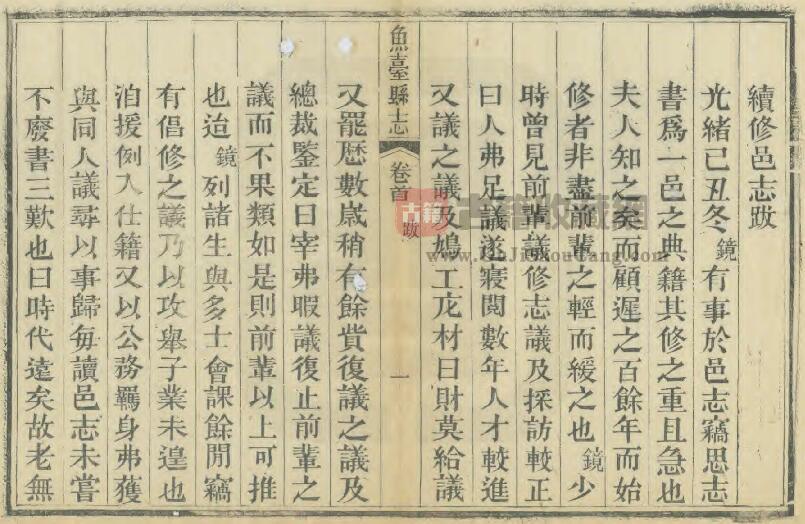 續修邑志跋
光緒己丑冬鏡有事於邑志竊思志
書爲一邑之典籍其修之重且急也
夫人知之矣而顧遲之百餘年而始
修者非盡前輩之輕而緩之也鏡少
時曾見前輩議修志議及採訪較正
曰人弗足議遂寢閱數年人才較進
又議之議及鳩工庀材曰財莫給議
魚臺縣志 卷首 跋 一
又罷歷數歲稍有餘貲復議之議及
總裁鑒定曰宰弗暇議復止前輩之
議而不果類如是則前輩以上可推
也迨鏡列諸生與多士會課餘閒竊
有倡修之議乃以攻舉子業未遑也
洎援例入仕籍又以公務羈身弗獲
與同人議尋以事歸每讀邑志未嘗
不廢書三歎也曰時代遠矣故老無
古籍
古籍收藏網